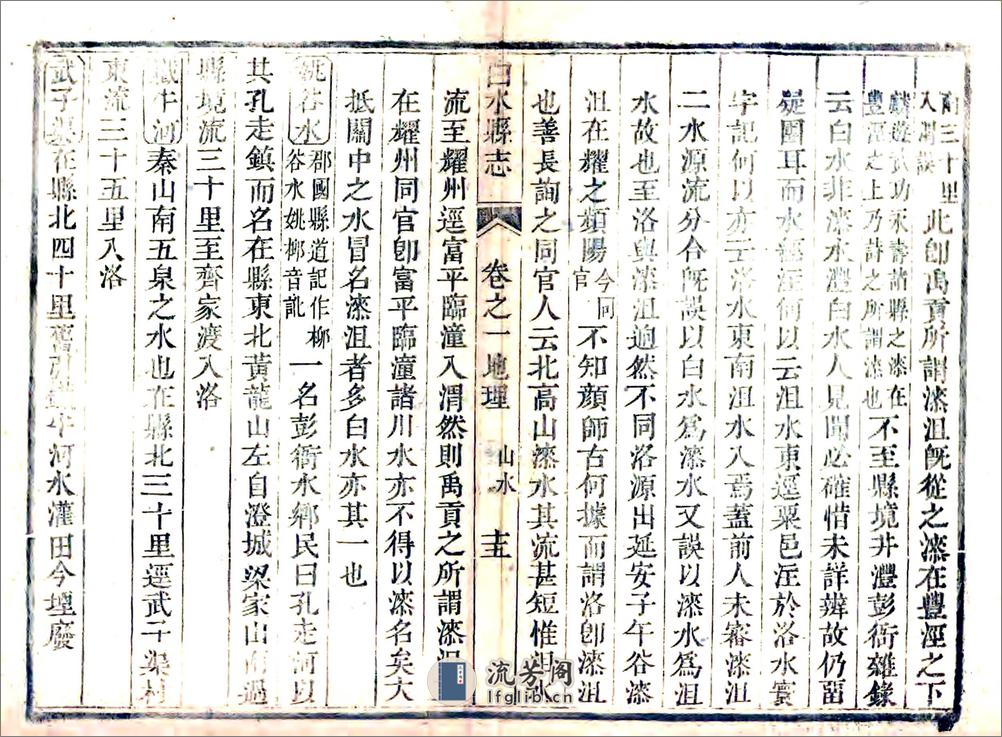 南三十里入渭誤此卽禹貢所謂漆沮旣從之漆在豐涇之下
麟遊武功永壽諸縣之漆在豐涇之上乃詩之所謂漆也不至縣境井灃彭衙雜錄
云白水非漆水灃白水人見聞必確惜未詳辨故仍畱
疑圖耳而水經注何以云沮水東逕粟邑注於洛水寰
宇記何以亦云洛水東南沮水入焉蓋前人未審漆沮
二水源流分合旣誤以白水爲漆水又誤以漆水爲沮
水故也至洛與漆沮迥然不同洛源出延安子午谷漆
沮在耀之頻陽今同官不知顔師古何據而謂洛卽漆沮
也善長詢之同官人云北高山漆水其流甚短惟沮水
白水縣志 卷之一 地理 山水 十五
流至耀州逕富平臨潼入渭然則禹貢之所謂漆沮
在耀州同官卽富平臨潼諸川水亦不得以漆名矣大
抵關中之水冒名漆沮者多白水亦其一也
姚谷水郡國縣道記作桺谷水姚桺音訛一名彭衙水鄉民曰孔走河以
其孔走鎮而名在縣東北黃龍山左自澄城梁家山南過
縣境流三十里至齊家渡入洛
鐵牛河秦山南五泉之水也在縣北三十里逕武子渠村
東流三十五里入洛
武子渠在縣北四十里舊引鐵牛河水灌田今堙廢
流芳阁
lfglib.cn